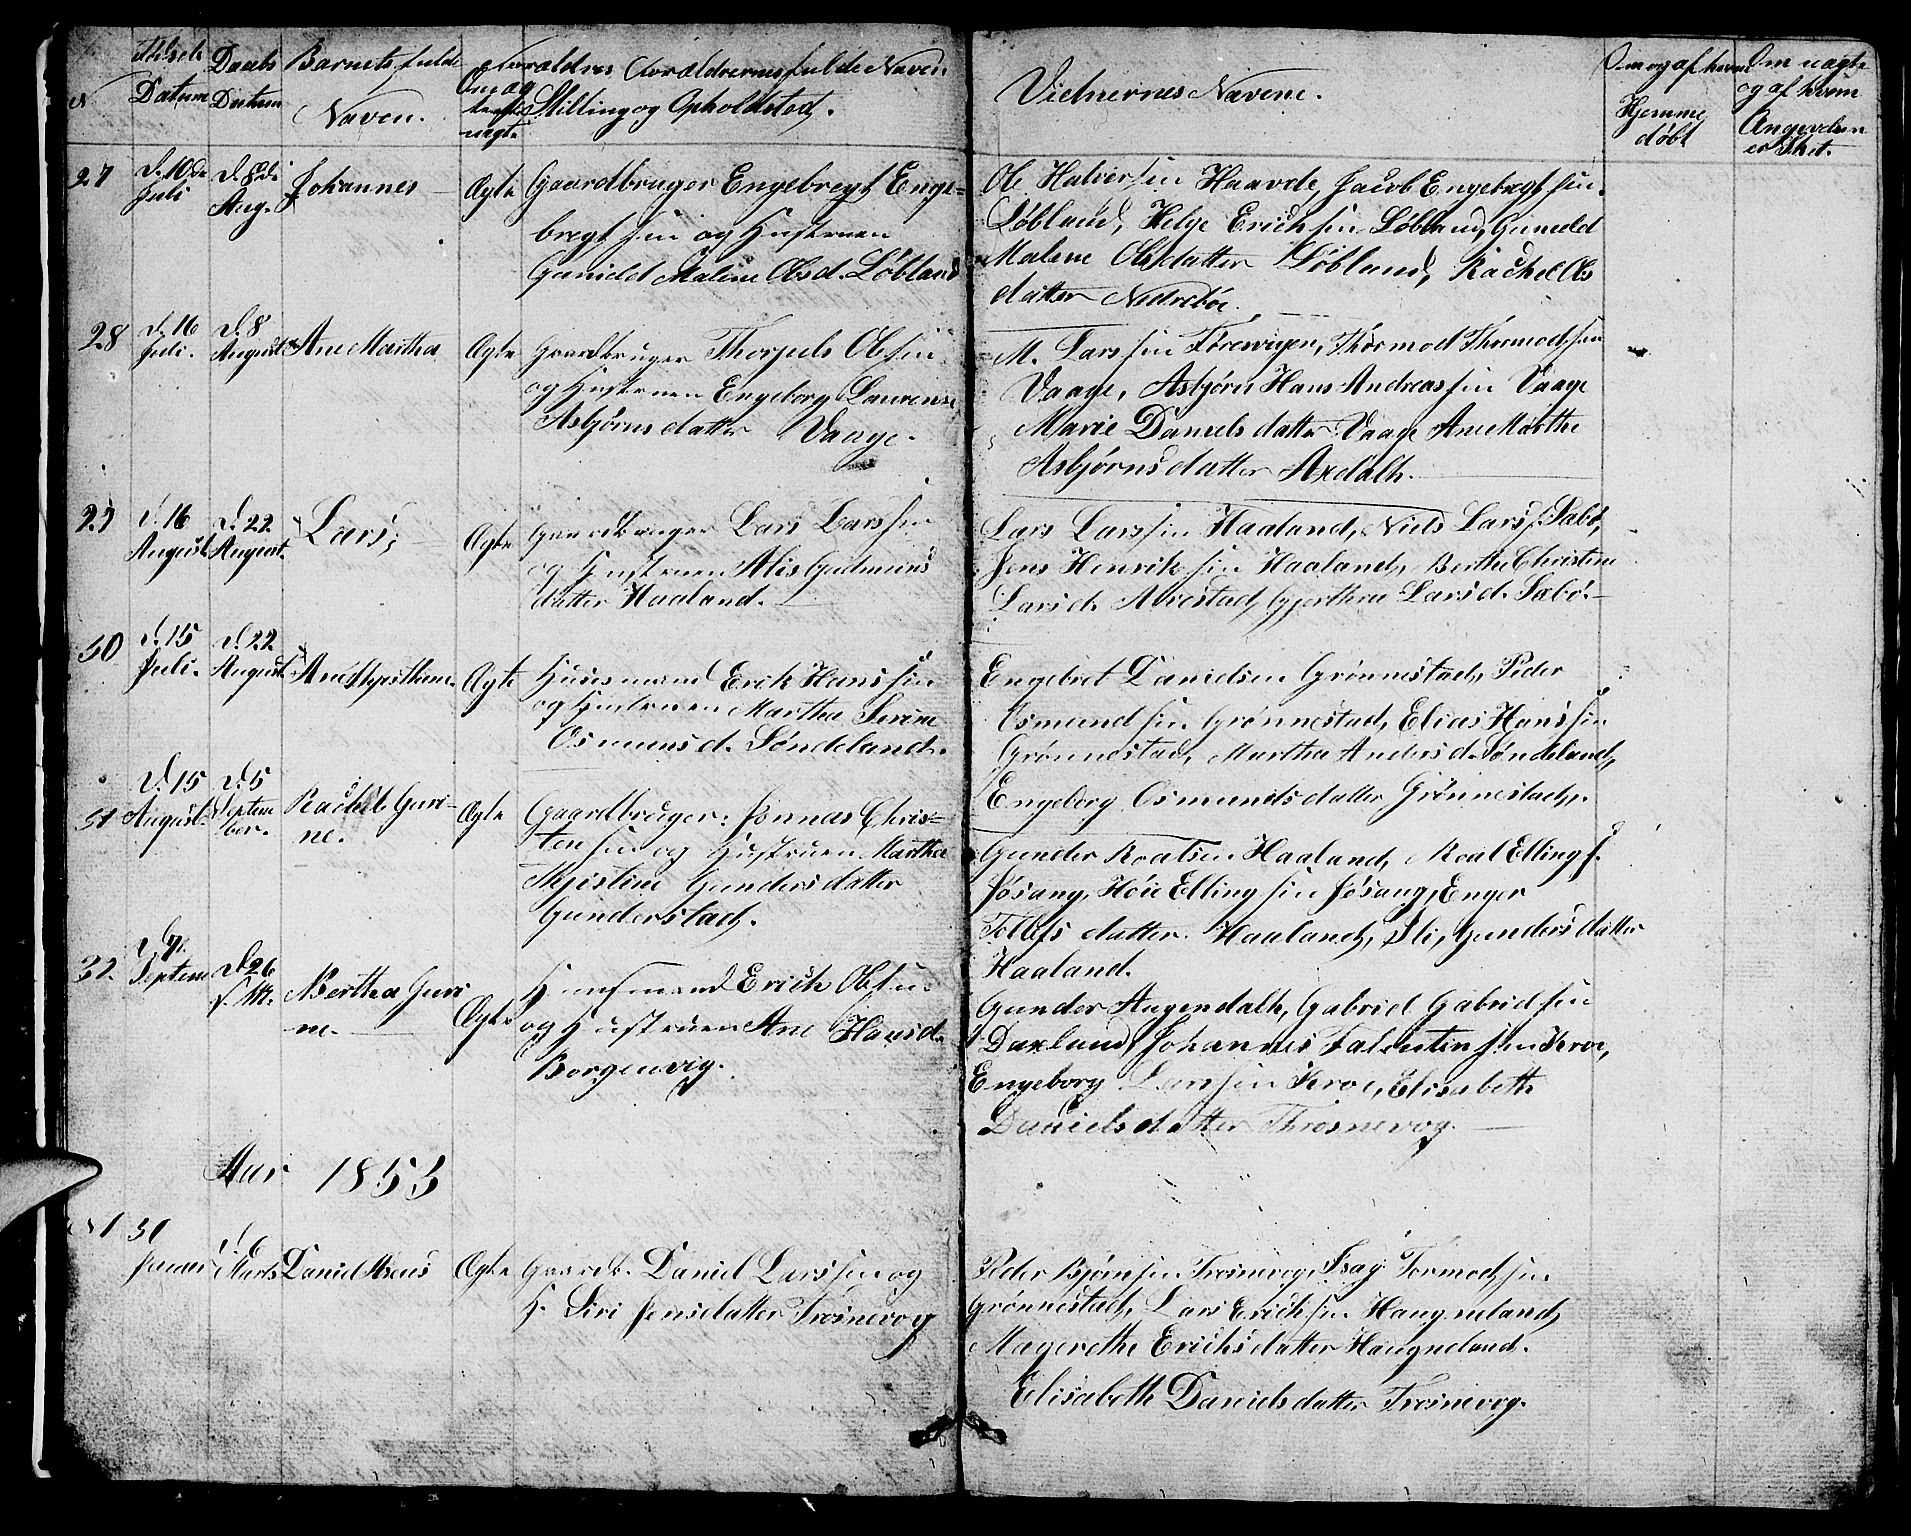 Datum
Daabs
Datum
Barnets fulde
Naven.
Forældrernes fulde Naven
Stilling og Opholdsted.
Vidnernes Navene.
Om og af hvem
Hjemme
døbt
Om uægte
og af hvem
Angivelsen
er skeet.
27
d. 10de
Juli
d. 8de
Aug.
Johannes
Ægte
Gaardbruger Engebregt Enge-
bregtsen og Hustruen
Gunild Malene Olsd. Løbland
Ole Halvorsen Haavde, Jacob Engebregtsen
Løbland, Helge Erichsen Løbland, Guneld
Malene Olsdatter Løbland, Rachel Ols
datter Nedrebøe.
28
d. 16
Juli.
d. 8
August
Ane Martha
Ægte
Gaardbruger Thorjuls Olsen
og Hustruen Engeborg Laurense
Asbjørnsdatter Vaage.
M. Larssen Førresvigen, Thormod Thormodsen
Vaage, Asbjørn Hans Andreassen Vaage
Marie Danielsdatter Vaage Ane Marthe
Asbjørnsdatter Axdalh.
29
d. 16
August
d. 22
August.
Lars,
Ægte
Gaardbruger Lars Larssen
og Hustruen Alis Gudmuns
datter Haaland.
Lars Larssen Haaland, Niels Lars. Sabø,
Jens Henriksen Haaland, Berthe Christine
Larsd. Alvestad, Gjerthrue Larsd. Sæbø.
30
d. 15
Juli.
d. 22
August
Ane Thjerstine.
Ægte
Huusmand Erik Hanssen
og Hustruen Martha Serine
Osmunsd. Søndeland.
Engebret Danielsen Grønnestad, Peder
Osmundsen Grønnestad, Elias Hanssen
Grønnestad, Martha Andersd. Søndeland,
Engeborg Osmundsdatter Grønnestad.
31
d. 15
August.
d. 5
Septem
ber.
Rachel Guri-
ne.
Ægte
Gaardbruger: Jonnas Chris-
tensen og Hustruen Martha
Thjistine Gundersdatter
Gunderstad.
Gunder Roalsen Haaland, Roal Elling s.
Jøsang, Høie Ellingsen Jøsang, Enger
Tollefsdatter Haaland, Sli, Gundersdatter
Haaland.
32
d. 7
Septem
d. 26
s. M.
Bertha Guri
ne.
Ægte
Huusmand Erich Olsen
og Hustruen Ane Hansd.
Borgenvig.
Gunder Augendalh, Gabriel Gabrielsen
Daxland, Johannes Falentinsen Kroe,
Engeborg Larssen Kroe, Elisabeth
Danielsdatter Throsnevog.
Aar 1853
N 1
31
Januar
d. 6
Marts
Daniel Areus
Ægte
Gaardb. Daniel Larssen og
H. Siri Jensdatter Trosnevog
Peder Bjørnsen Trosnevog, Tormodsen
Grønnestad, Lars Erichsen Haugneland,
Magerethe Erichsdatter Haugneland.
Elisabeth Danielsdatter Trosnevog.